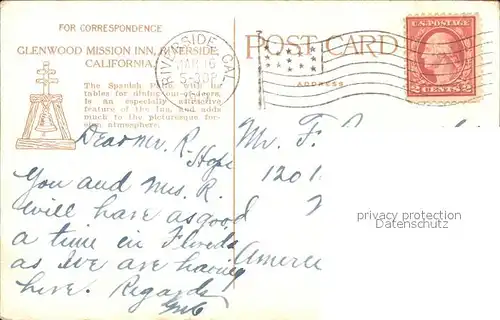 FOR CORRESPONDENCE
GLENWOOD MISSION INN, RIVERSIDE,
CALIFORNIA.
The Spanish Patio, with its
tables for dining out-of-doors,
is an especially attractive
feature of the Inn, and adds
much to the picturesque for-
eign atmosphere.
POST CARD
ADDRESS
RIVERSIDE, CAL.
MAR 16
5-30P
U.S. POSTAGE
2 CENTS 2
Dear Mr. R-
Hope
You and Mrs. R.
will have as good
a time in Florida
as We are having
here. Regards
Mr. F.
120
Americ
privacy protection
Datenschutz